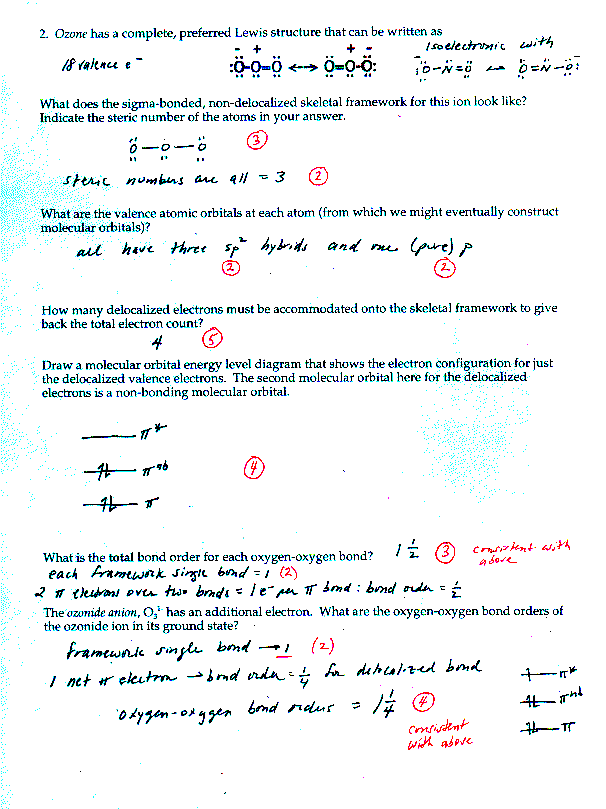 2. Ozone has a complete, preferred Lewis structure that can be written as
18 valence e⁻
- +
+ -
isoelectronic with
:Ö-O=Ö ↔ Ö=O-Ö:
:Ö-N̈=Ö ↔ Ö=N̈-Ö:
What does the sigma-bonded, non-delocalized skeletal framework for this ion look like?
Indicate the steric number of the atoms in your answer.
Ö — O — Ö (3)
steric numbers are all = 3 (2)
What are the valence atomic orbitals at each atom (from which we might eventually construct
molecular orbitals)?
all have three sp² hybrids and one (pure) p
(2) (2)
How many delocalized electrons must be accommodated onto the skeletal framework to give
back the total electron count?
4 (5)
Draw a molecular orbital energy level diagram that shows the electron configuration for just
the delocalized valence electrons. The second molecular orbital here for the delocalized
electrons is a non-bonding molecular orbital.
π*
π nb (4)
π
What is the total bond order for each oxygen-oxygen bond? 1 1/2 (3) consistent with
above
each framework single bond = 1 (2)
2 π electrons over two bonds = 1 e⁻ per π bond : bond order = 1/2
The ozonide anion, O₃¹⁻ has an additional electron. What are the oxygen-oxygen bond orders of
the ozonide ion in its ground state?
framework single bond → 1 (2)
1 net π electron → bond order = 1/4 for delocalized bond
π*
oxygen-oxygen bond orders = 1 1/4 (4)
π nb
consistent
with above
π